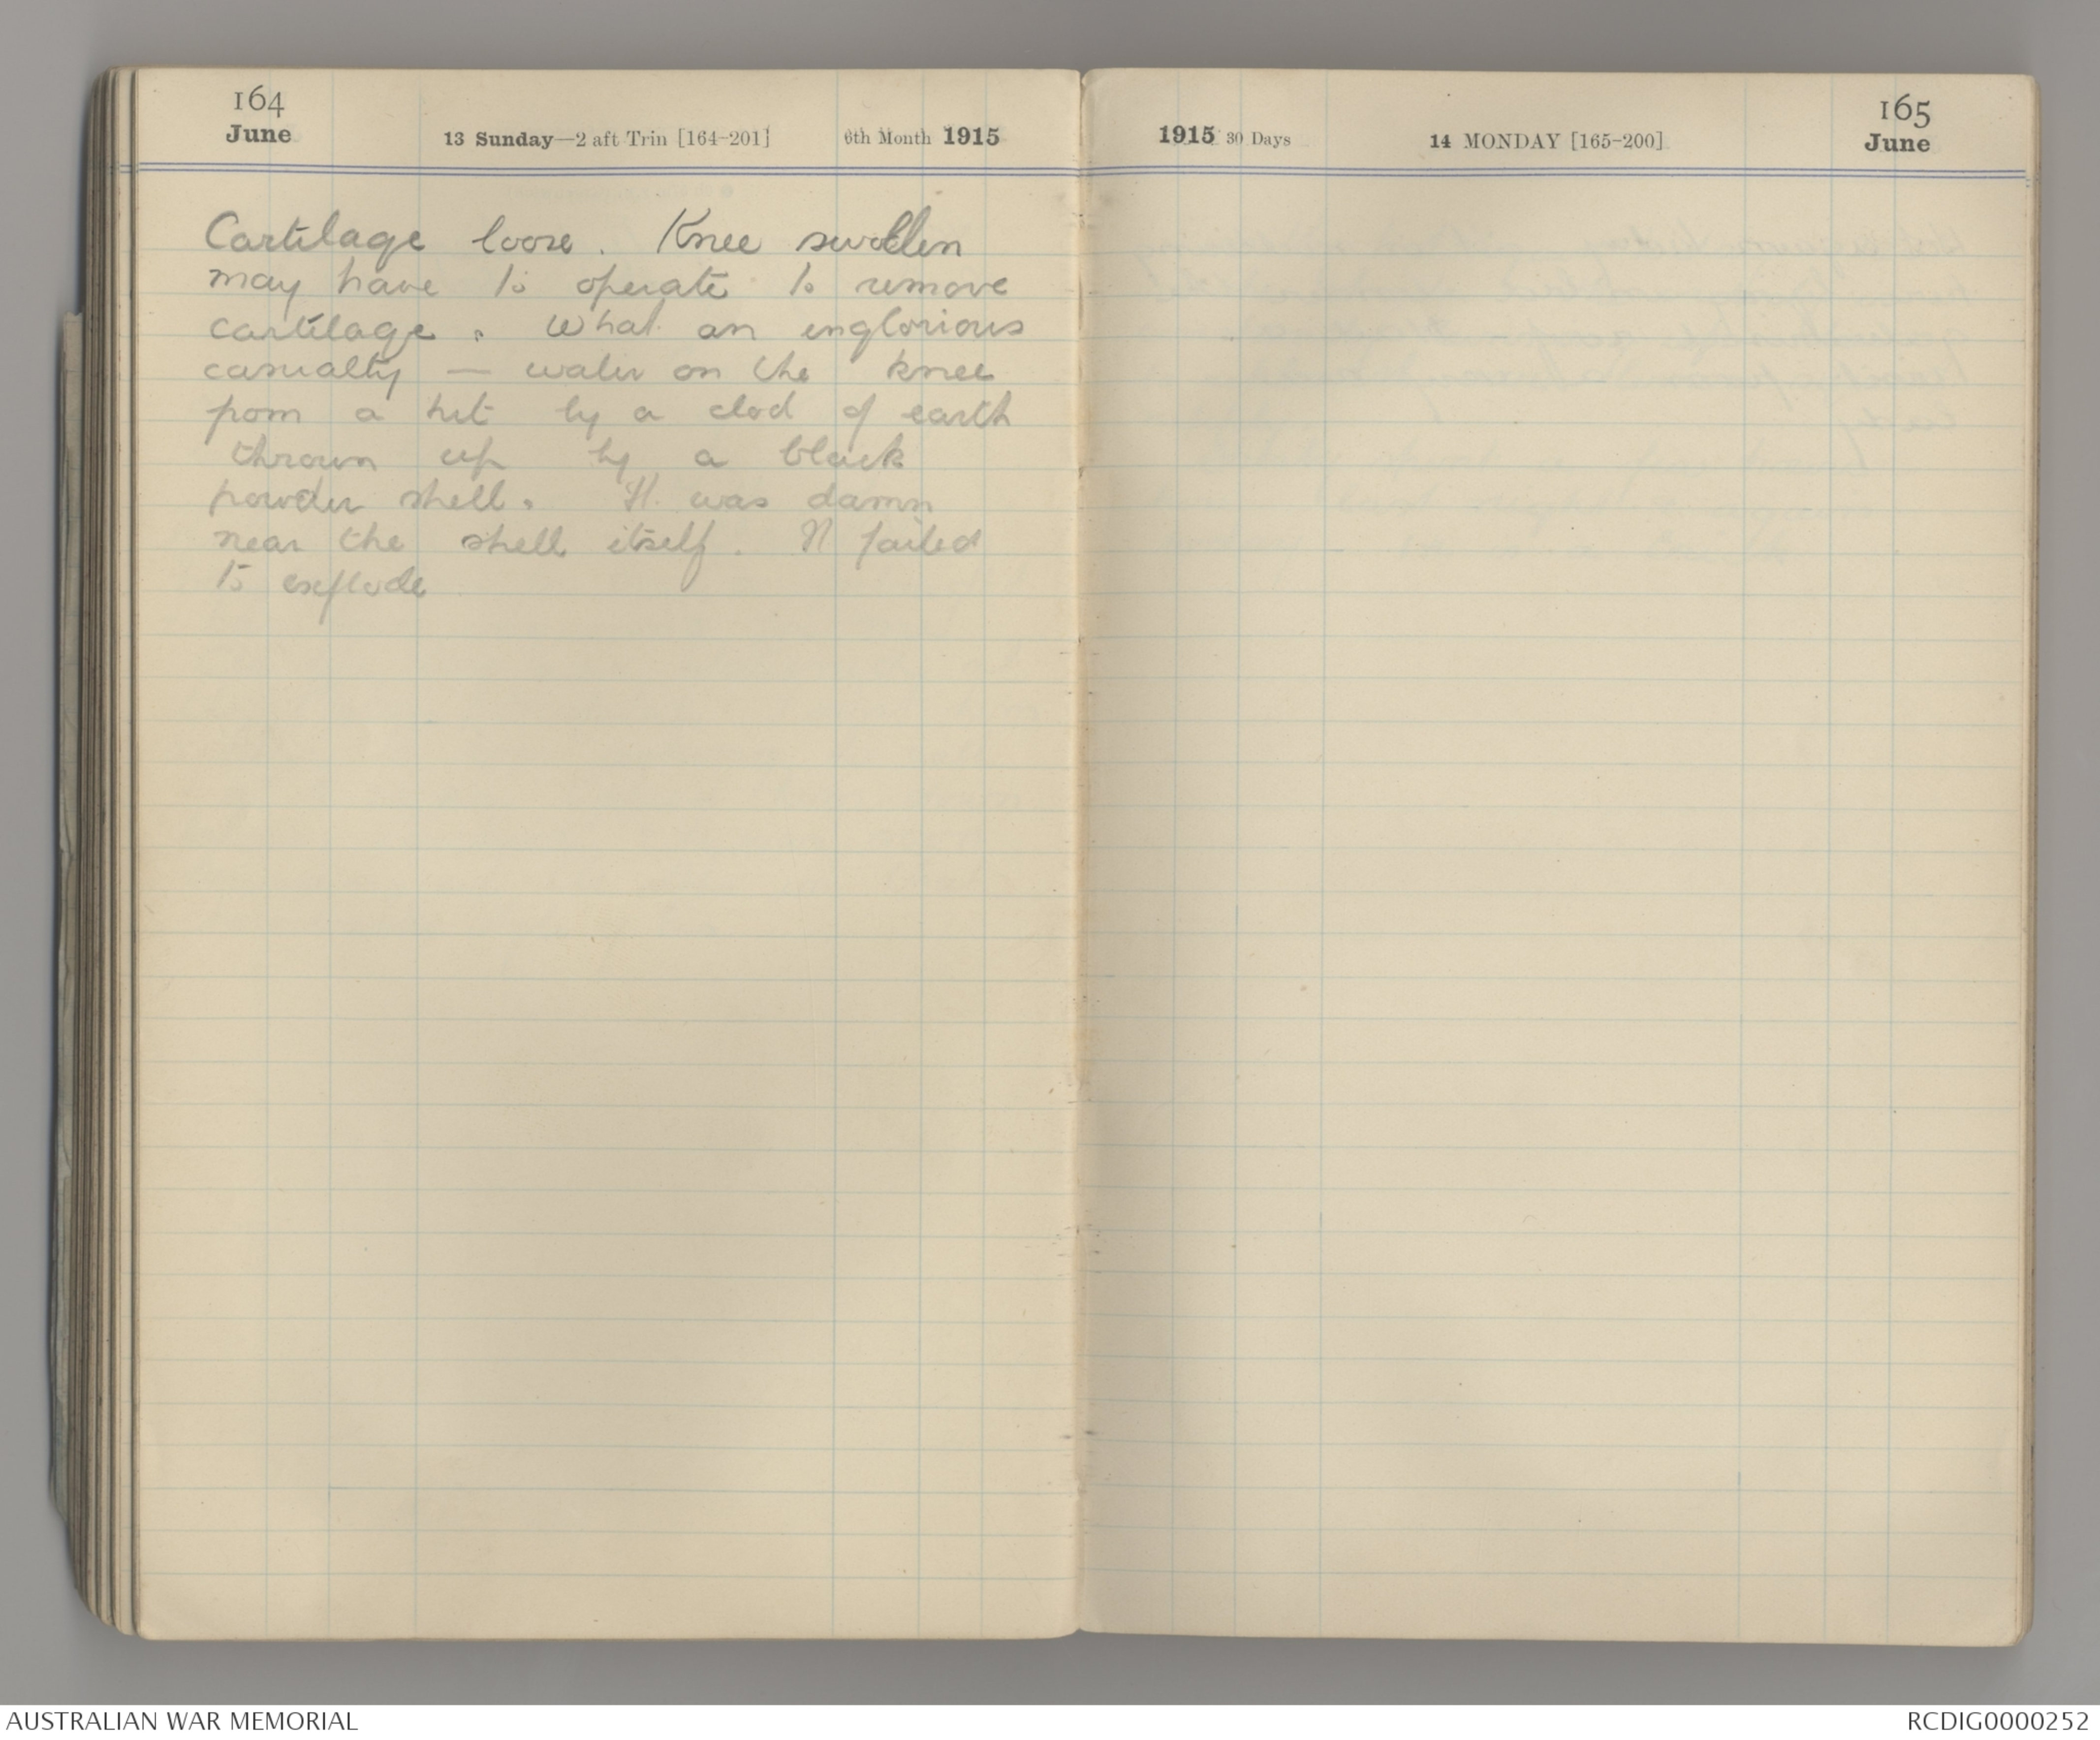 164
June
13 Sunday—2 aft Trin [164-201]
6th Month 1915
Cartilage loose. Knee swollen
may have to operate to remove
cartilage. What an inglorious
casualty — water on the knee
from a hit by a clod of earth
thrown up by a black
powder shell. It was damn
near the shell itself. It failed
to explode
1915 30 Days
14 MONDAY [165-200]
165
June
AUSTRALIAN WAR MEMORIAL
RCDIG0000252